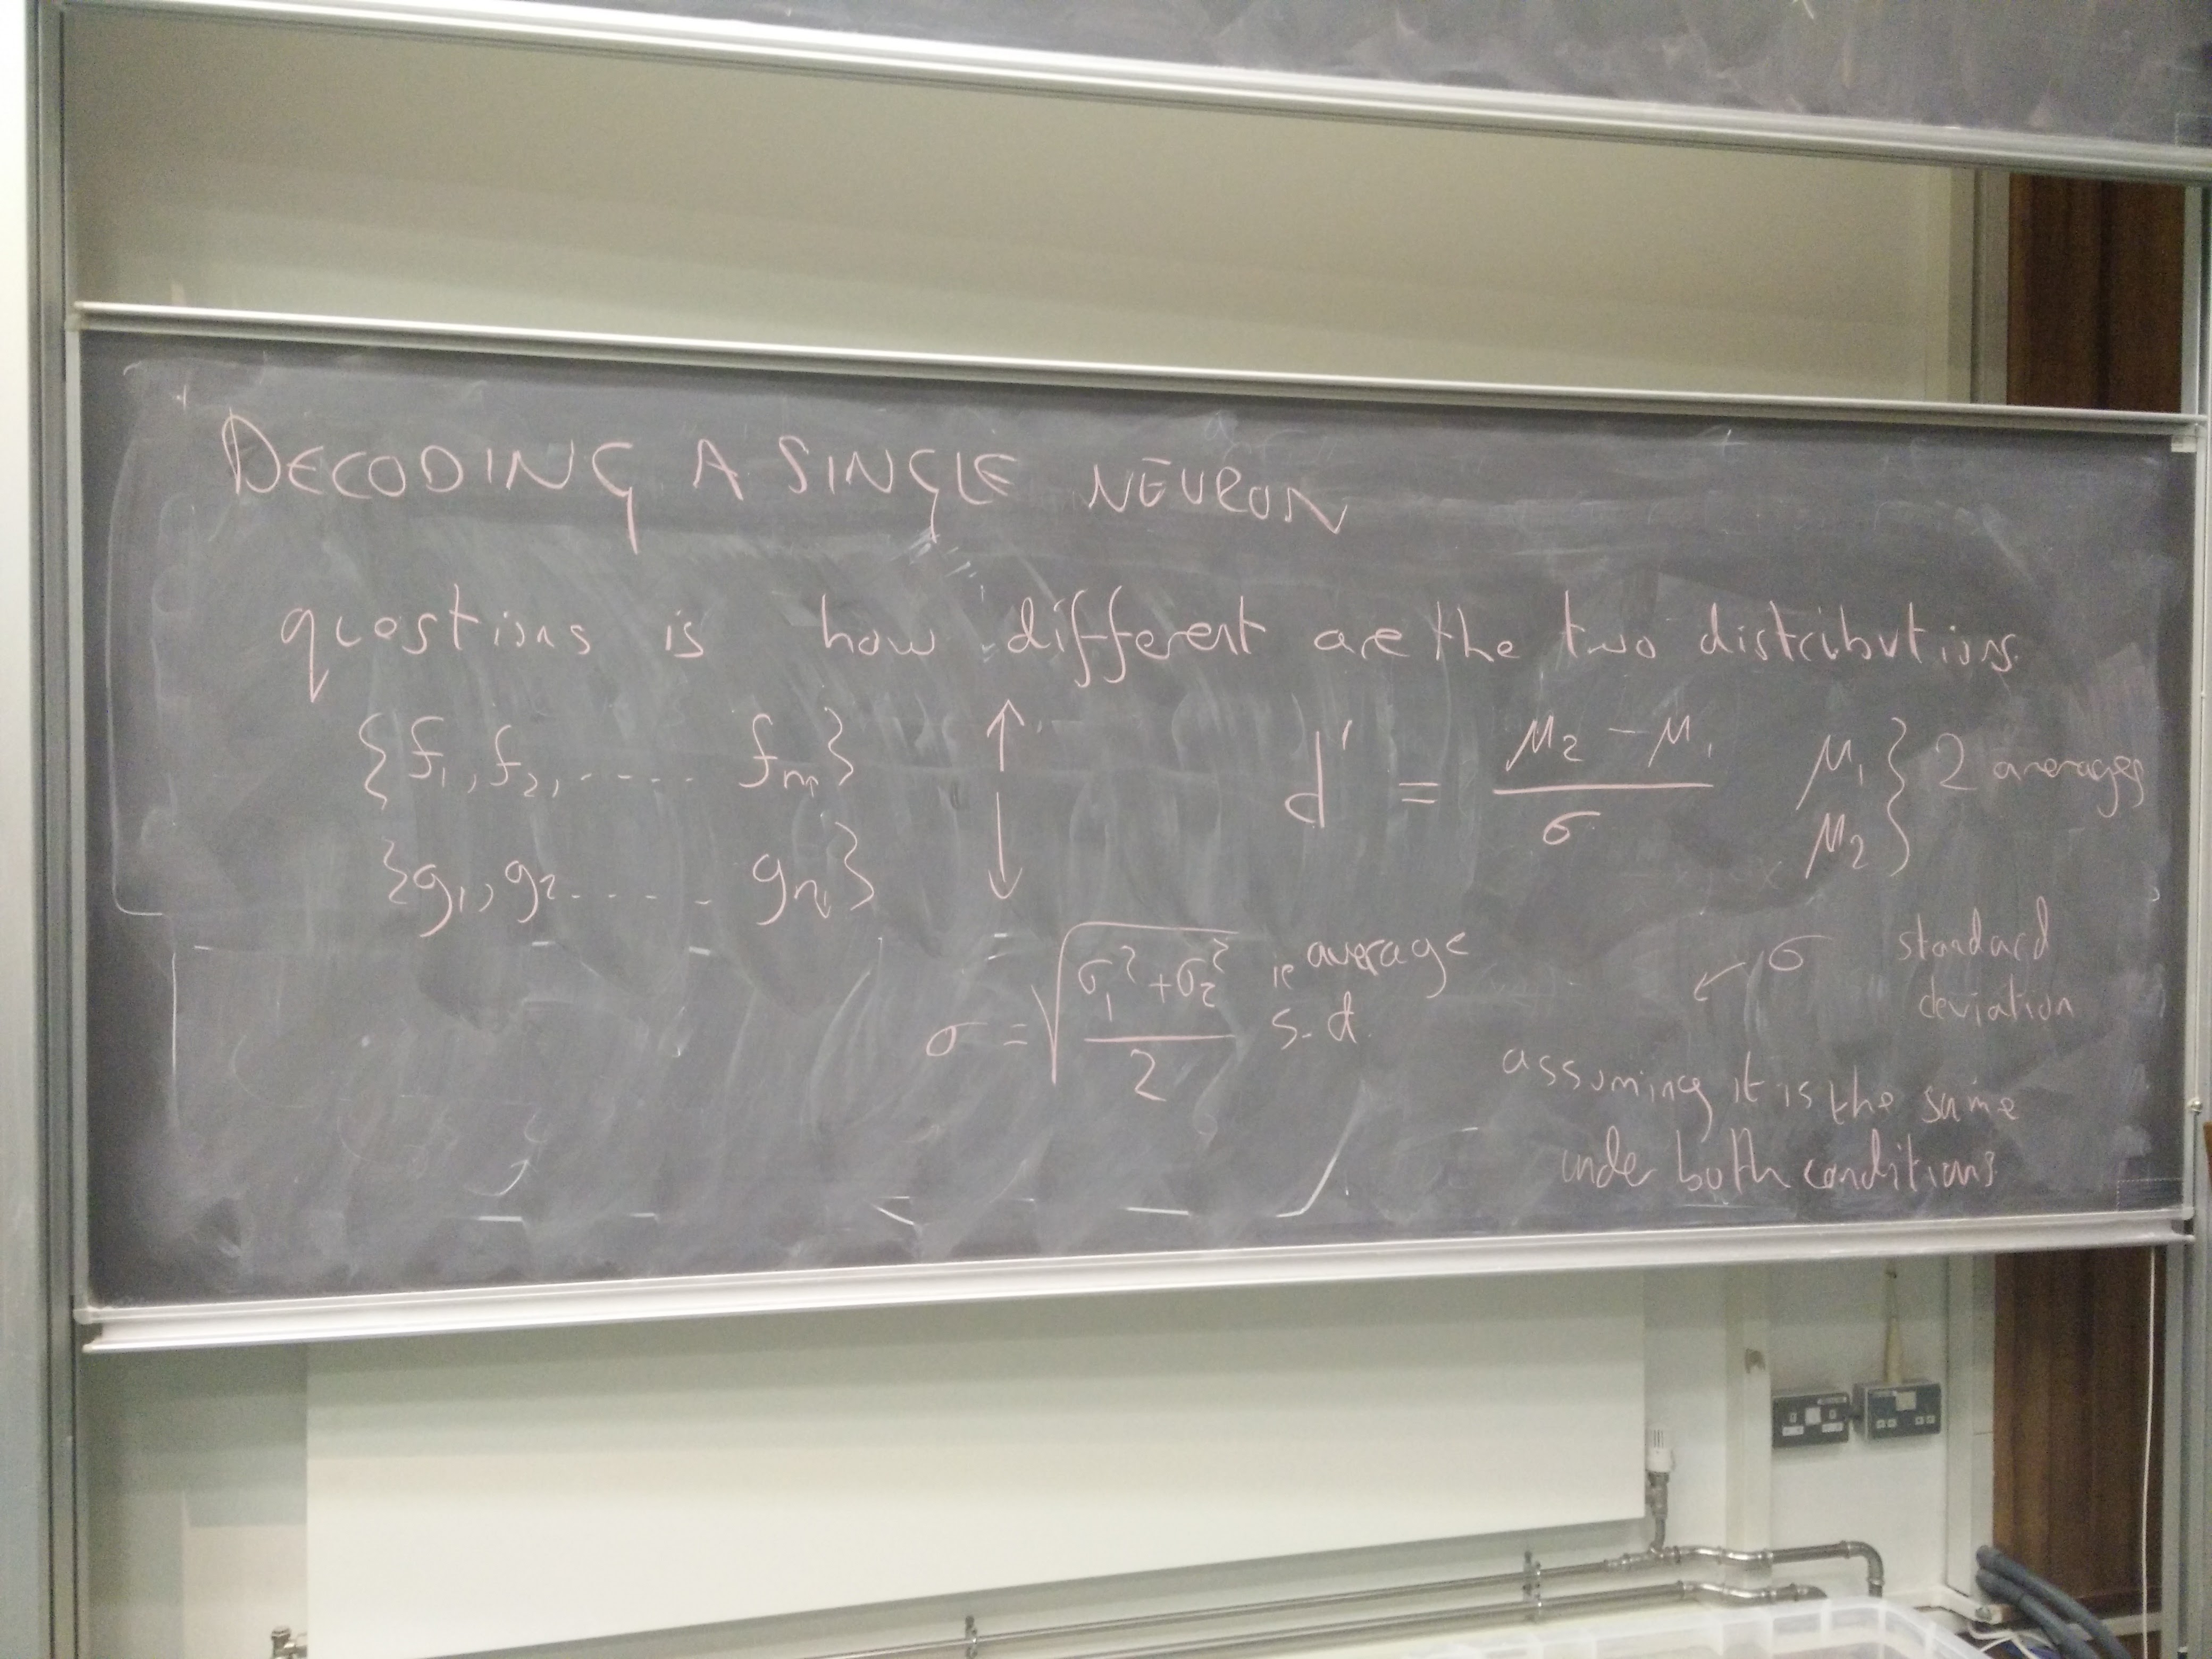 DECODING A SINGLE NEURON
questions is how different are the two distributions.
{f₁, f₂, ..... fₘ}
{g₁, g₂ ..... gₙ}
d' = (μ₂ - μ₁) / σ
μ₁ } 2 averages
μ₂
σ = √((σ₁² + σ₂²) / 2) ie average
s.d.
σ standard
deviation
assuming it is the same
under both conditions